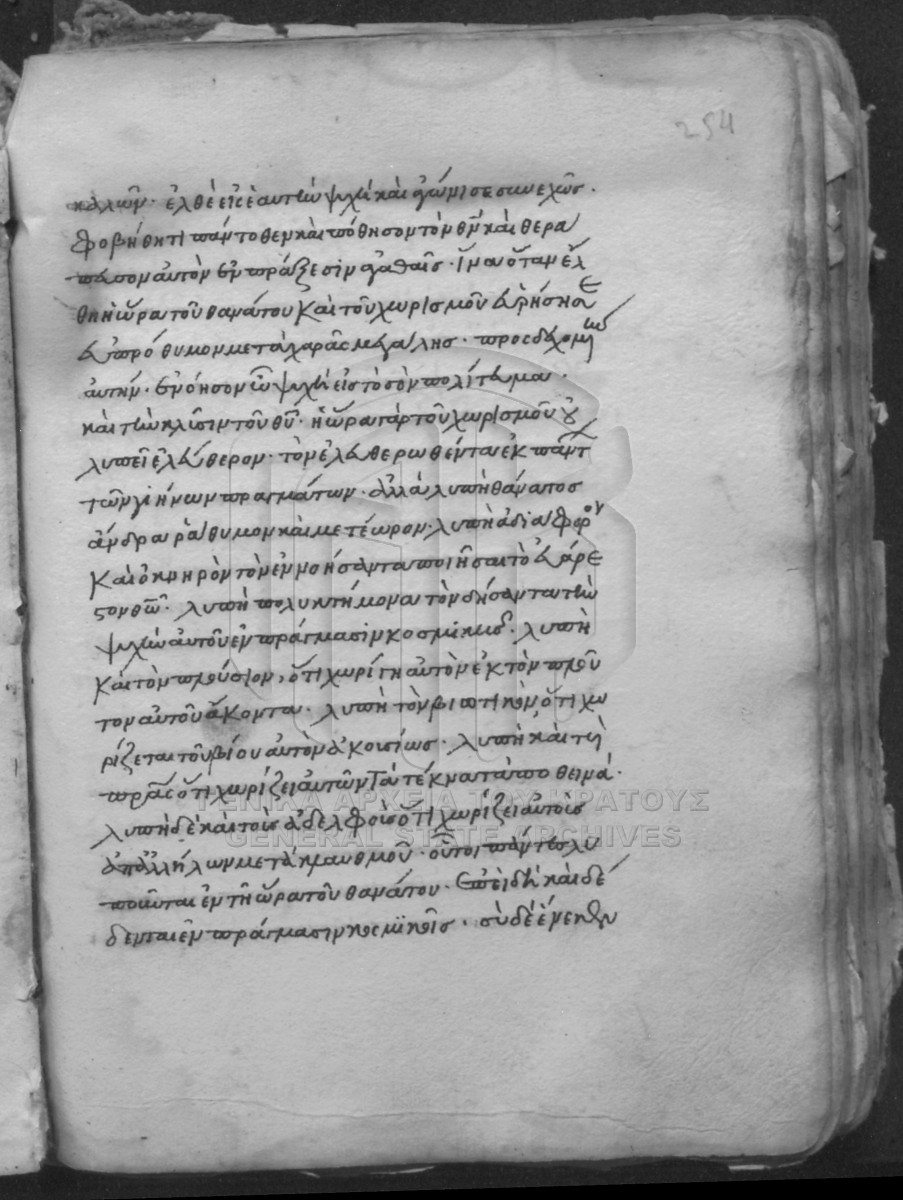 254
καλῶν· ἐλθὲ εἰς ἑαυτὴν ψυχὴ καὶ ἀγώνισε συνεχῶς.
φοβήθητι πάντοθεν καὶ πόθησον τὸν θν̄ καὶ θερα
πευσον αὐτὸν ἐν πράξεσιν ἀγαθαῖς· ἵνα ὅταν ἔλ
θη ἡ ὥρα τοῦ θανάτου καὶ τοῦ χωρισμοῦ εὑρήση σε
εὐπρόθυμον μετὰ χαρᾶς μεγάλης· προσδεχομένην
αὐτήν· ἐνόησον ὦ ψυχὴ εἰς τὸ σὸν πολίτευμα·
καὶ τὴν κλῆσιν τοῦ θῦ· ἡ ὥρα γὰρ τοῦ χωρισμοῦ οὐ
λυπεῖ ἐλεύθερον· τὸν ἐλευθερωθέντα ἐκ πάντων
τῶν γηΐνων πραγμάτων· ἀλλὰ λυπῆ θάνατος
ἄνδρα ῥάθυμον καὶ μετέωρον· λυπῆ ἀδιάφορον
καὶ ὀκνηρὸν τὸν ἐννοήσαντα ποιῆσαι τὸ εὐάρε
στον θῶ· λυπῆ πολυκτήμονα τὸν δήσαντα τὴν
ψυχὴν αὐτοῦ ἐν πράγμασιν κοσμικοῖς· λυπῆ
καὶ τὸν πλούσιον, ὅτι χωρίζη αὐτὸν ἐκ τὸν πλοῦ
τον αὐτοῦ ἄκοντα· λυπῆ τὸν βιοτικὸν ὅτι χω
ρίζεται τοῦ βίου αὐτὸν ἀκουσίως· λυπῆ καὶ τῆ
πρᾶς ὅτι χωρίζει αὐτῶν τὰ τέκνα τὰ ποθεινά·
λυπῆ δὲ καὶ τοῖς ἀδελφοῖς ὅτι χωρίζει αὐτοῖς
ἀπ' ἀλλήλων μετὰ κλαυθμοῦ· οὗτοι πάντες λυ
ποῦνται ἐν τῆ ὥρα τοῦ θανάτου· ἐπειδὴ καὶ δέ
δενται ἐν πράγμασιν κοσμικοῖς· σὺ δὲ ἕνεκεν
ΓΕΝΙΚΑ ΑΡΧΕΙΑ ΤΟΥ ΚΡΑΤΟΥΣ
GENERAL STATE ARCHIVES